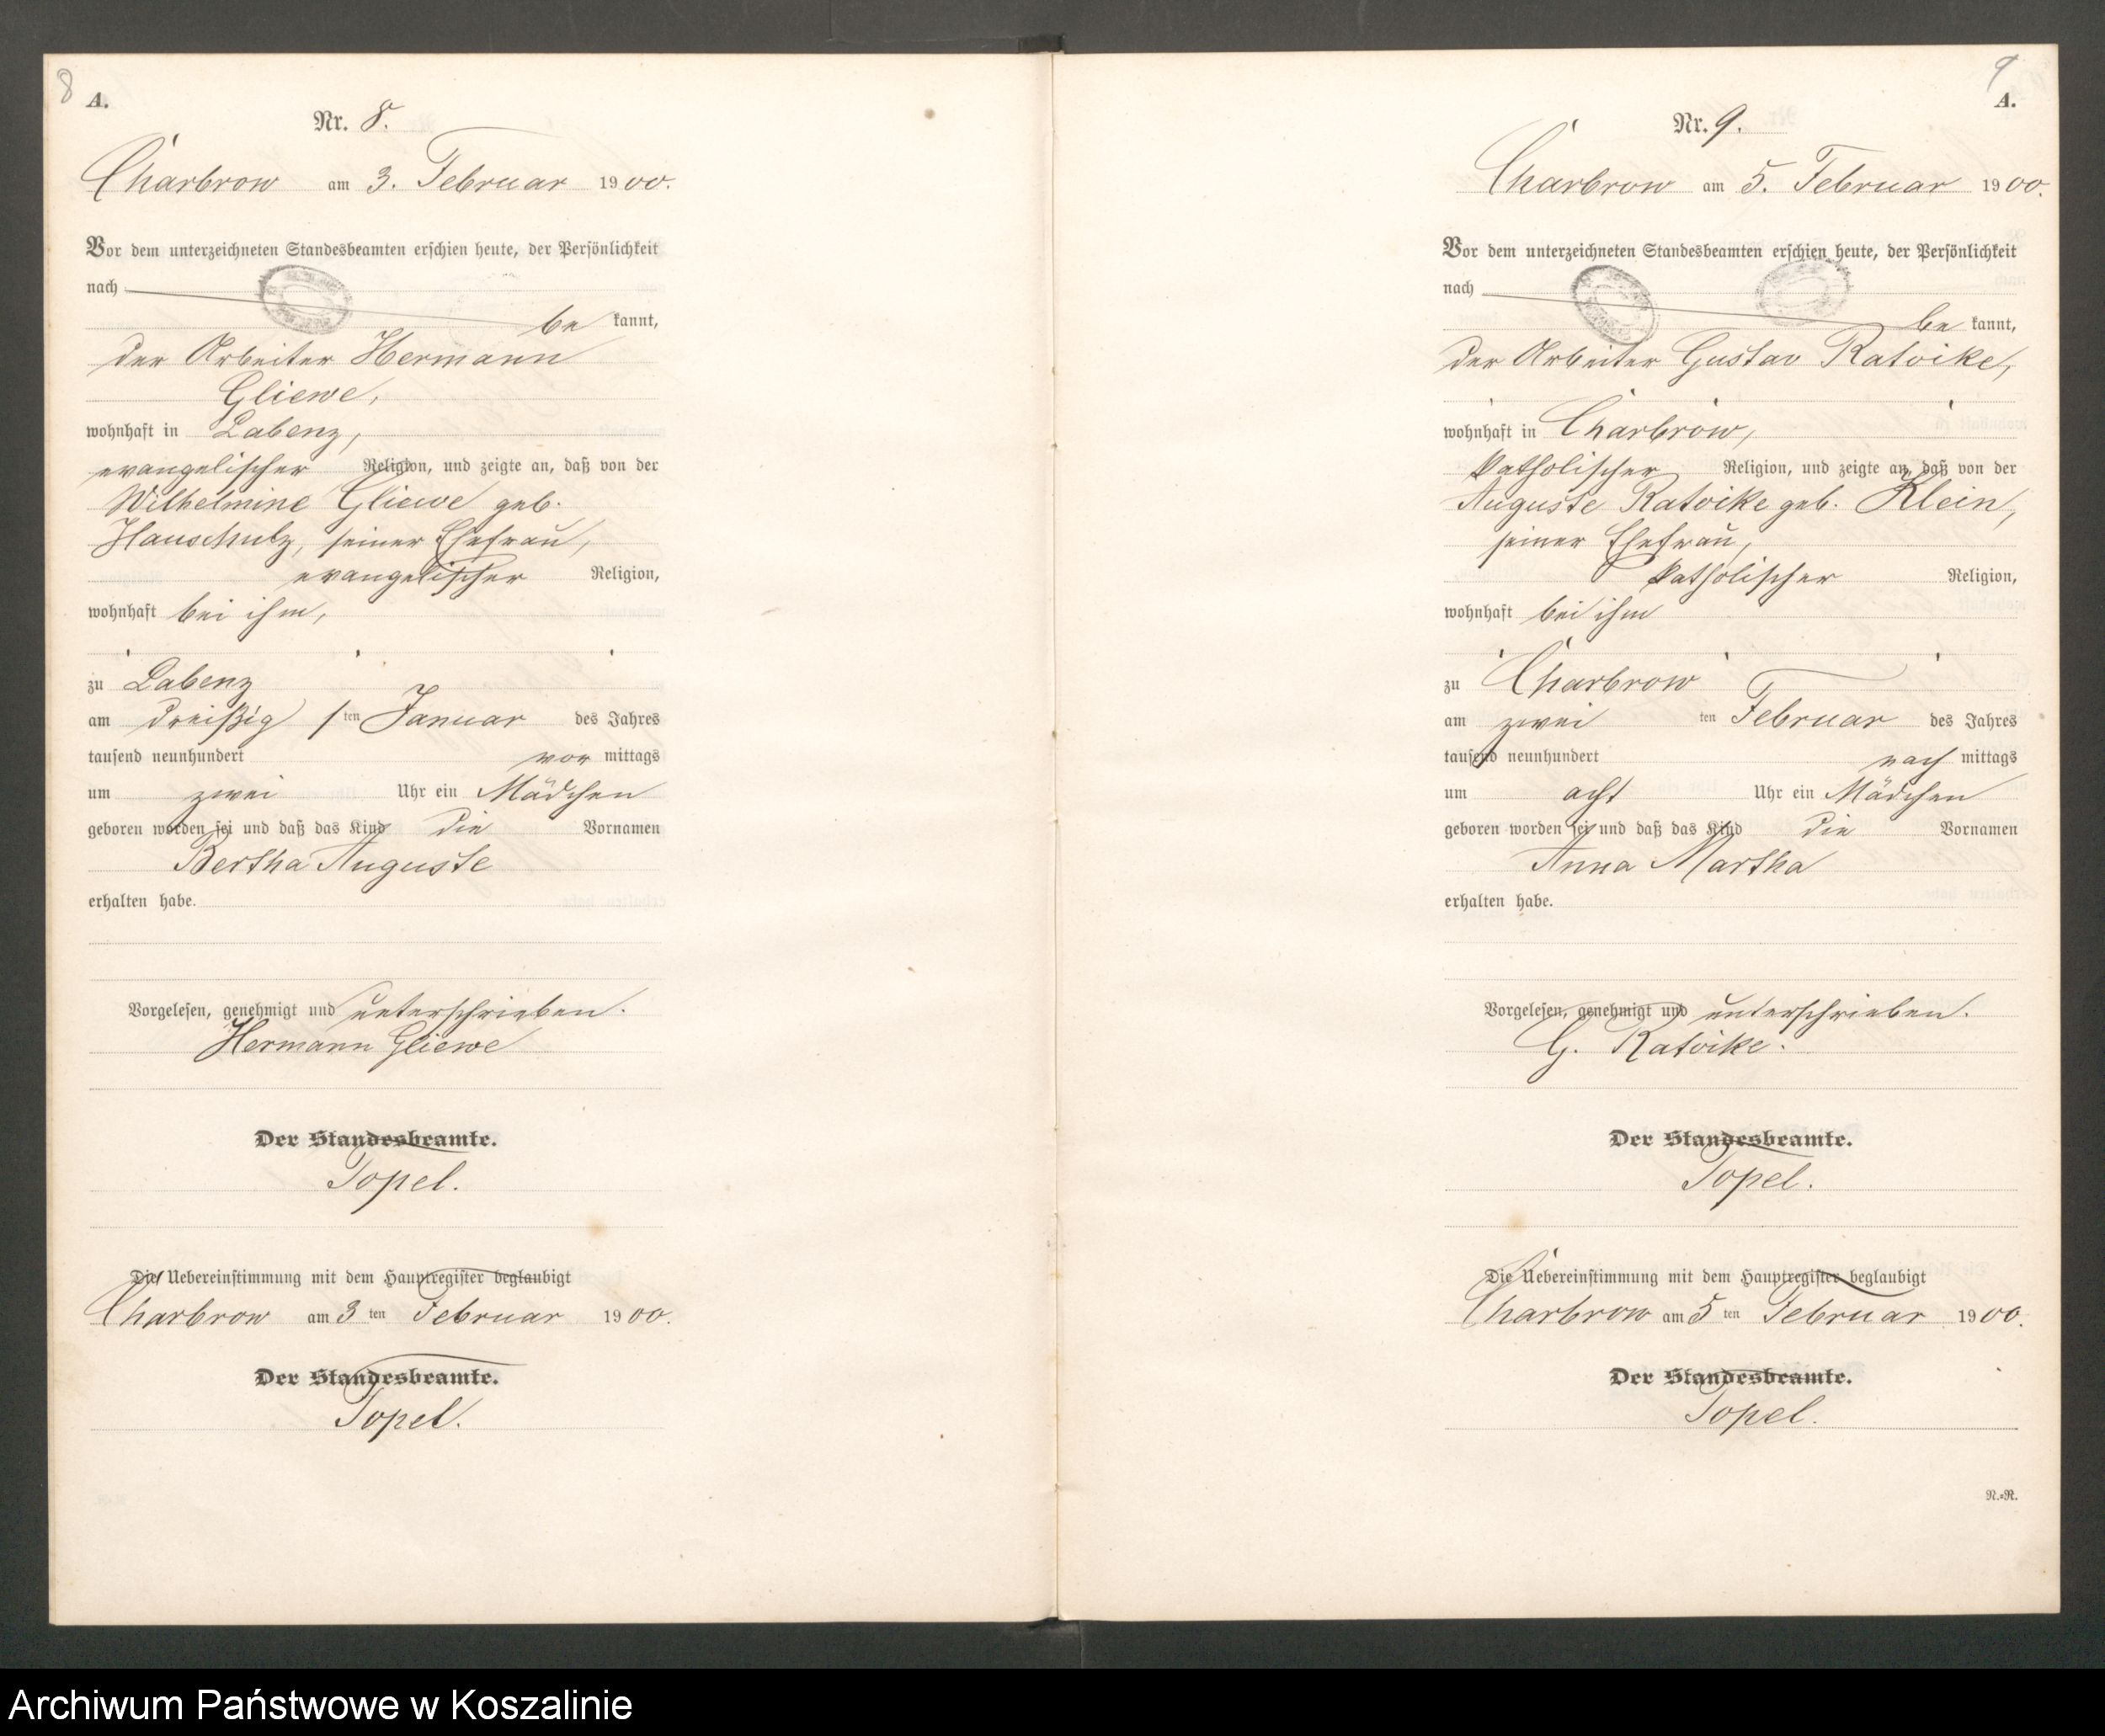 8
A.
Nr. 8.
Charbrow am 3. Februar 1900.
Vor dem unterzeichneten Standesbeamten erschien heute, der Persönlichkeit
nach
be kannt,
der Arbeiter Hermann
Gliewe,
wohnhaft in Labenz,
evangelischer Religion, und zeigte an, daß von der
Wilhelmine Gliewe geb.
Hauschulz, seiner Ehefrau,
evangelischer Religion,
wohnhaft bei ihm,
zu Labenz
am dreißig sten Januar des Jahres
tausend neunhundert vor mittags
um zwei Uhr ein Mädchen
geboren worden sei und daß das Kind die Vornamen
Bertha Auguste
erhalten habe.
Vorgelesen, genehmigt und unterschrieben.
Hermann Gliewe
Der Standesbeamte.
Topel.
Die Uebereinstimmung mit dem Hauptregister beglaubigt
Charbrow am 3 ten Februar 1900.
Der Standesbeamte.
Topel.
9
A.
Nr. 9.
Charbrow am 5. Februar 1900.
Vor dem unterzeichneten Standesbeamten erschien heute, der Persönlichkeit
nach
be kannt,
der Arbeiter Gustav Ratoike,
wohnhaft in Charbrow,
katholischer Religion, und zeigte an, daß von der
Auguste Ratoike geb. Klein,
seiner Ehefrau,
katholischer Religion,
wohnhaft bei ihm
zu Charbrow
am zwei ten Februar des Jahres
tausend neunhundert nach mittags
um acht Uhr ein Mädchen
geboren worden sei und daß das Kind die Vornamen
Anna Martha
erhalten habe.
Vorgelesen, genehmigt und unterschrieben.
G. Ratoike.
Der Standesbeamte.
Topel.
Die Uebereinstimmung mit dem Hauptregister beglaubigt
Charbrow am 5 ten Februar 1900.
Der Standesbeamte.
Topel.
N.=R.
Archiwum Państwowe w Koszalinie